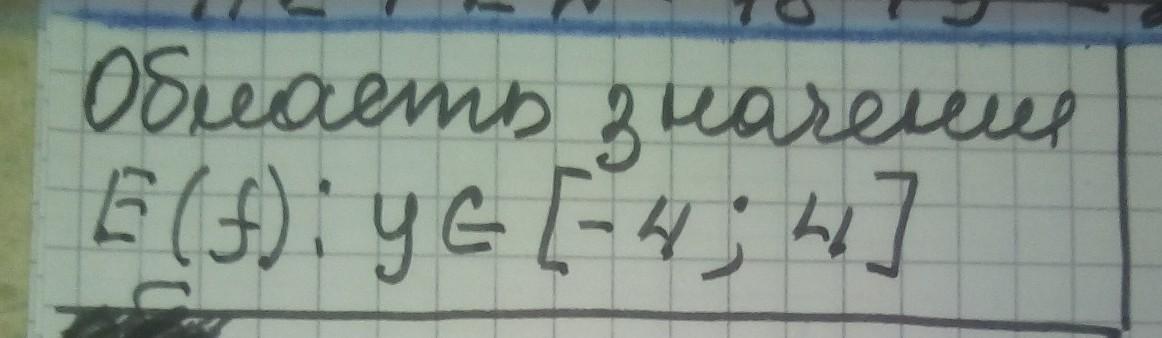 Область значения
E(f): y ∈ [-4; 4]